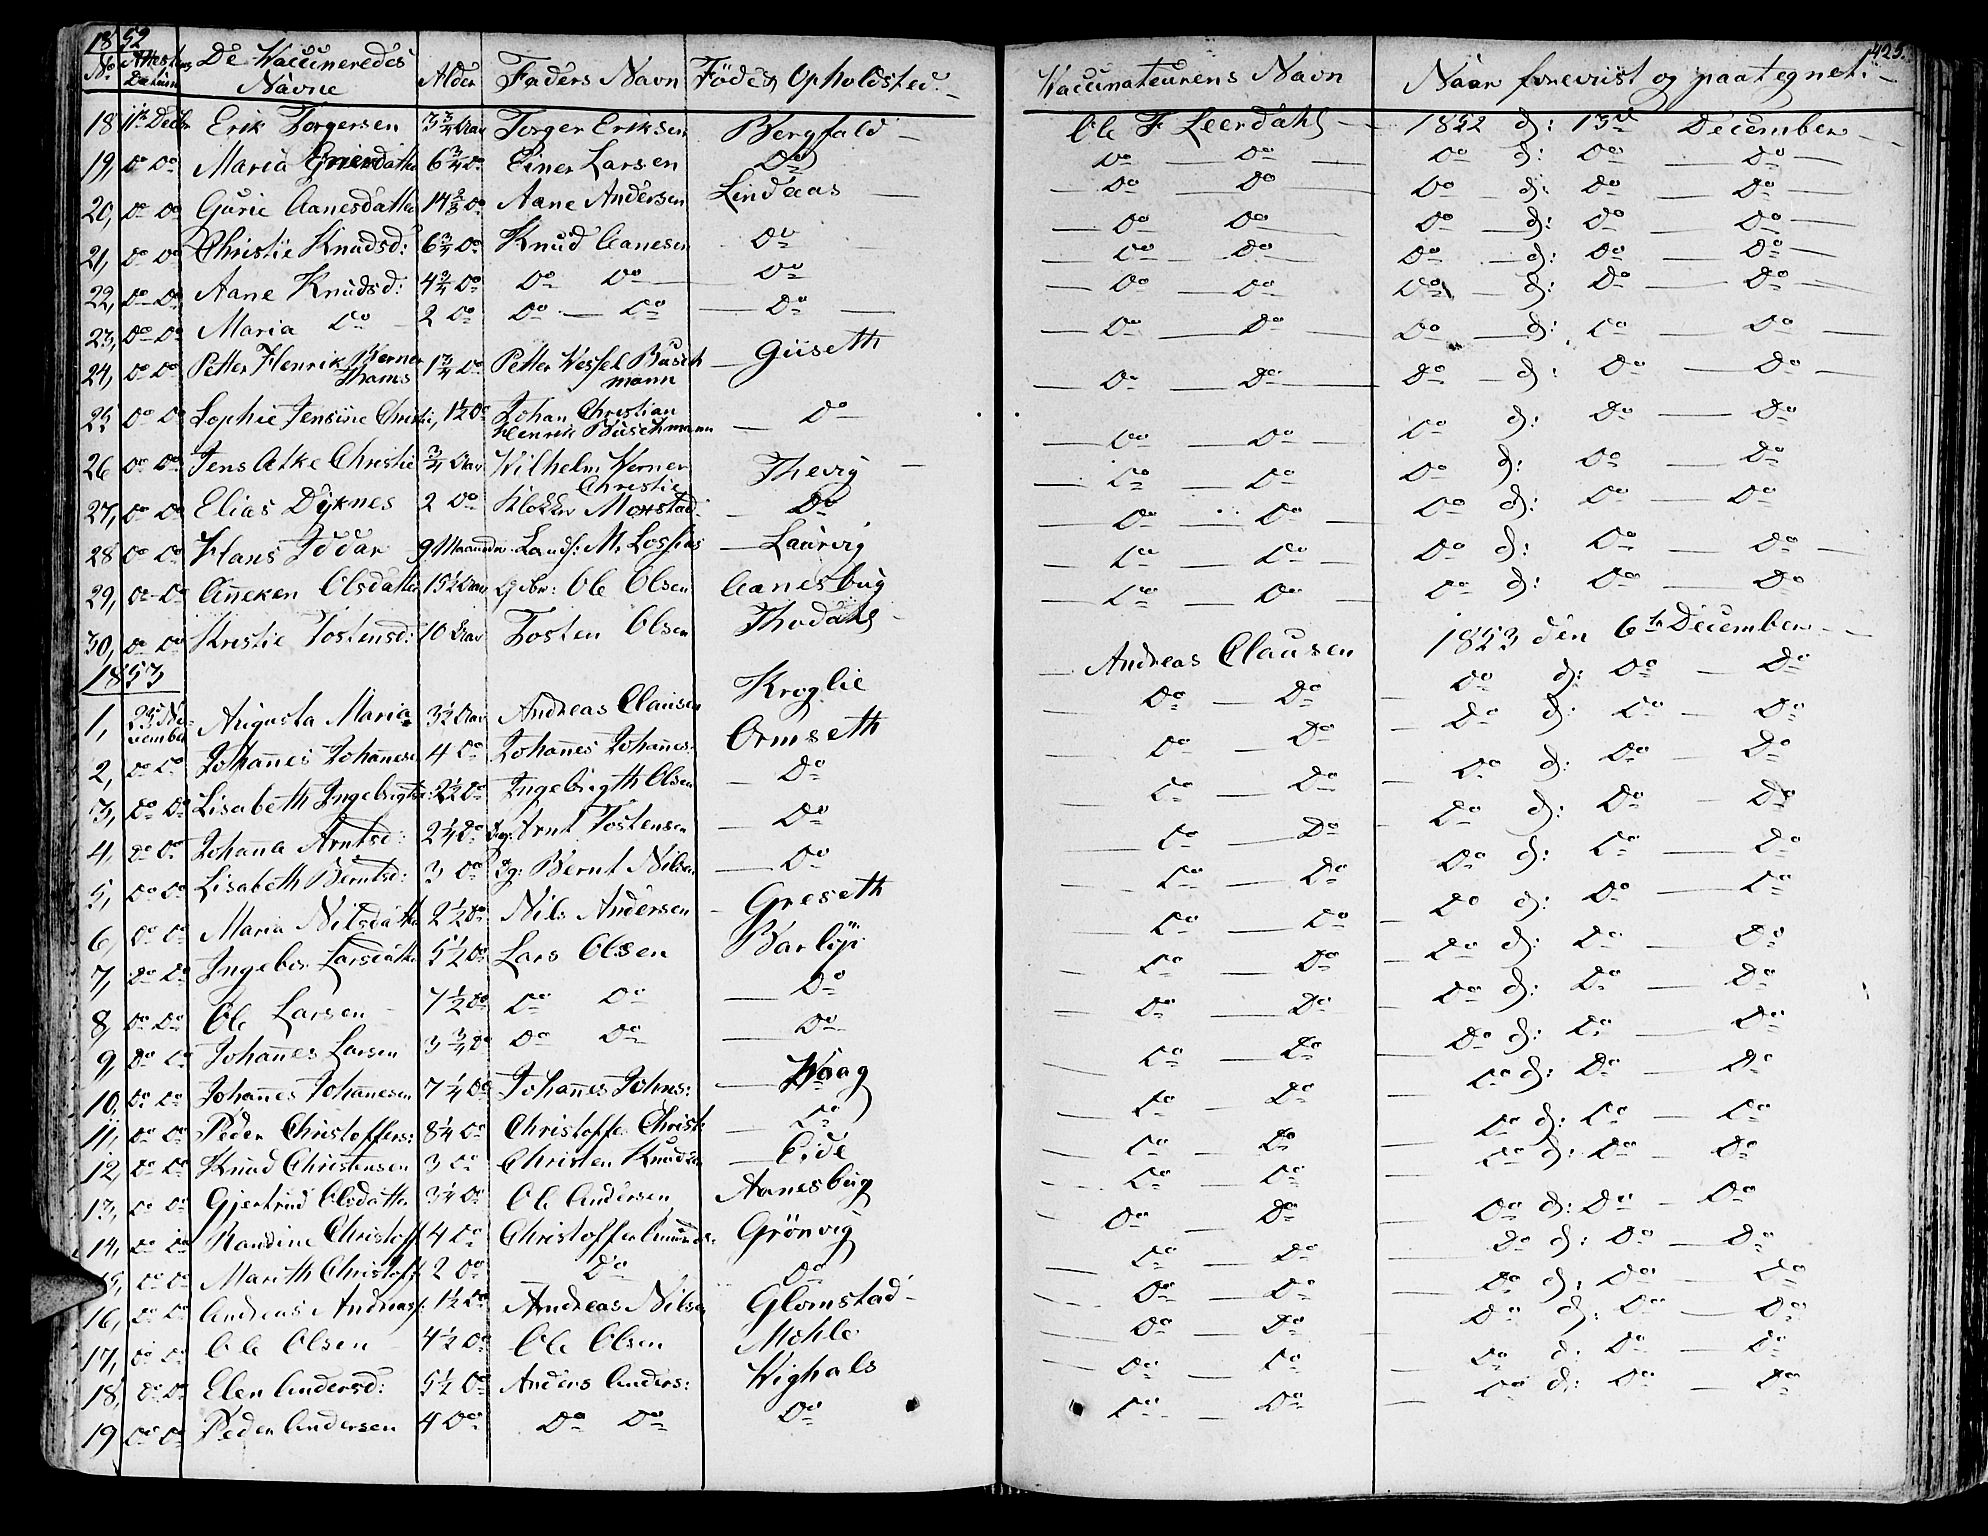 1852
No Attestens Datum De Vaccineredes Navne Alder Faders Navn Födes Opholdsted Vaccinateurens Navn Naar foreviist og paategnet. 425.
18 11te Decbr Erik Torgersen 3 3/4 Aar Torger Eriksen Bergfald Ole F Leerdahl 1852 d: 13de December
19, Do Do Maria Einersdatter 6 3/4 Do Einer Larsen Do Do Do Do d: Do Do
20, Do Do Gurie Aanesdatter 14 2/3 Do Aane Andersen Lindaas Do Do Do d: Do Do
21, Do Do Christie Knudsd: 6 3/4 Do Knud Aanesen Do Do Do Do d: Do Do
22, Do Do Aane Knudsd: 4 3/4 Do Do Do Do Do Do Do d: Do Do
23, Do Do Maria Do 2 Do Do Do Do Do Do Do d: Do Do
24, Do Do Petter Henrik Werner Thams 1 3/4 Do Petter Wessel Buschmann Giiseth Do Do Do d: Do Do
25 Do Do Sophie Jensine Christie, 1 1/2 Do Johan Christian Henrik Buschmann Do Do Do Do d: Do Do
26 Do Do Jens Atke Christie 3/4 Aar Wilhelm Werner Christie Thevig Do Do Do d: Do Do
27, Do Do Elias Dyknes 2 Do Klokker Moxstad Do Do Do Do d: Do Do
28 Do Do Hans Iddar 9 Maaneder Landh: M. Lossius Laurvig Do Do Do d: Do Do
29, Do Do Anneken Olsdatter 15 1/2 Aar Ole Olsen Aanesbug Do Do Do d: Do Do
30, Do Do Kristie Tostensd: 10 Aar Tosten Olsen Thodahl Do Do Do d: Do Do
1853
1, 23 November Augusta Maria 3 1/2 Aar Andreas Clausen Kroglie Andreas Clausen 1853 den 6te December
2, Do Do Johannes Johannesen 4 Do Johannes Johannes: Ormseth Do Do Do d: Do Do
3, Do Do Lisabeth Ingebrigts: 2 1/2 Do Ingebrigth Olsen Do Do Do Do d: Do Do
4, Do Do Johanna Arntsd: 2 1/4 Do Arnt Tostensen Do Do Do Do d: Do Do
5, Do Do Lisabeth Berntsd: 3 Do Bernt Nilsen Do Do Do Do d: Do Do
6, Do Do Maria Nilsdatter 2 1/2 Do Nils Andersen Greseth Do Do Do d: Do Do
7, Do Do Ingebor Larsdatter 5 1/2 Do Lars Olsen Barlöp Do Do Do d: Do Do
8, Do Do Ole Larsen 7 1/2 Do Do Do Do Do Do Do d: Do Do
9, Do Do Johannes Larsen 3 3/4 Do Do Do Do Do Do Do d: Do Do
10, Do Do Johannes Johannesen 7 1/4 Do Johannes Johns: Waag Do Do Do d: Do Do
11, Do Do Peder Christoffers: 8 1/4 Do Christoffer Christ: Do Do Do Do d: Do Do
12, Do Do Knud Christensen 3 Do Christen Knudsen Eide Do Do Do d: Do Do
13, Do Do Gjertrud Olsdatter 3 1/4 Do Ole Andersen Aanesbug Do Do Do d: Do Do
14, Do Do Randine Christoff: 4 Do Christoffer Grönvig Do Do Do d: Do Do
15, Do Do Marith Christoff: 2 Do Do Do Do Do Do d: Do Do
16, Do Do Andreas Andreas: 1 1/2 Do Andreas Nilsen Glomstad Do Do Do d: Do Do
17, Do Do Ole Olsen 4 1/2 Do Ole Olsen Mohle Do Do Do d: Do Do
18, Do Do Elen Andersd: 5 1/2 Do Anders Anders: Wighals Do Do Do d: Do Do
19 Do Do Peder Andersen 4 Do Do Do Do Do Do Do d: Do Do